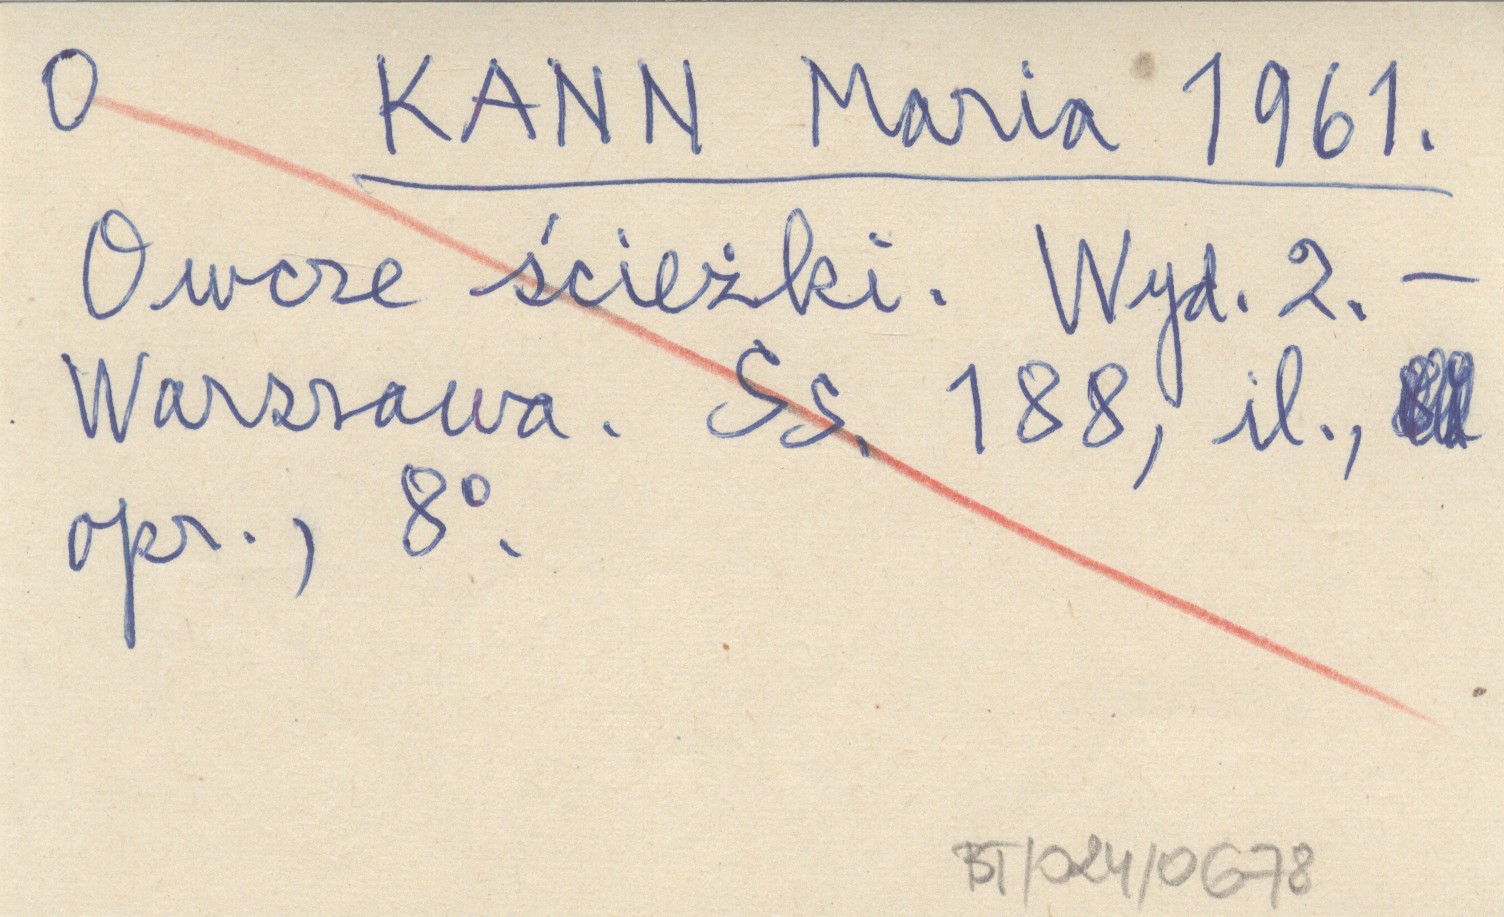 O KANN Maria 1961.
Owcze ścieżki. Wyd. 2. —
Warszawa. Ss. 188, il.,
opr., 8º.
BT/024/0678